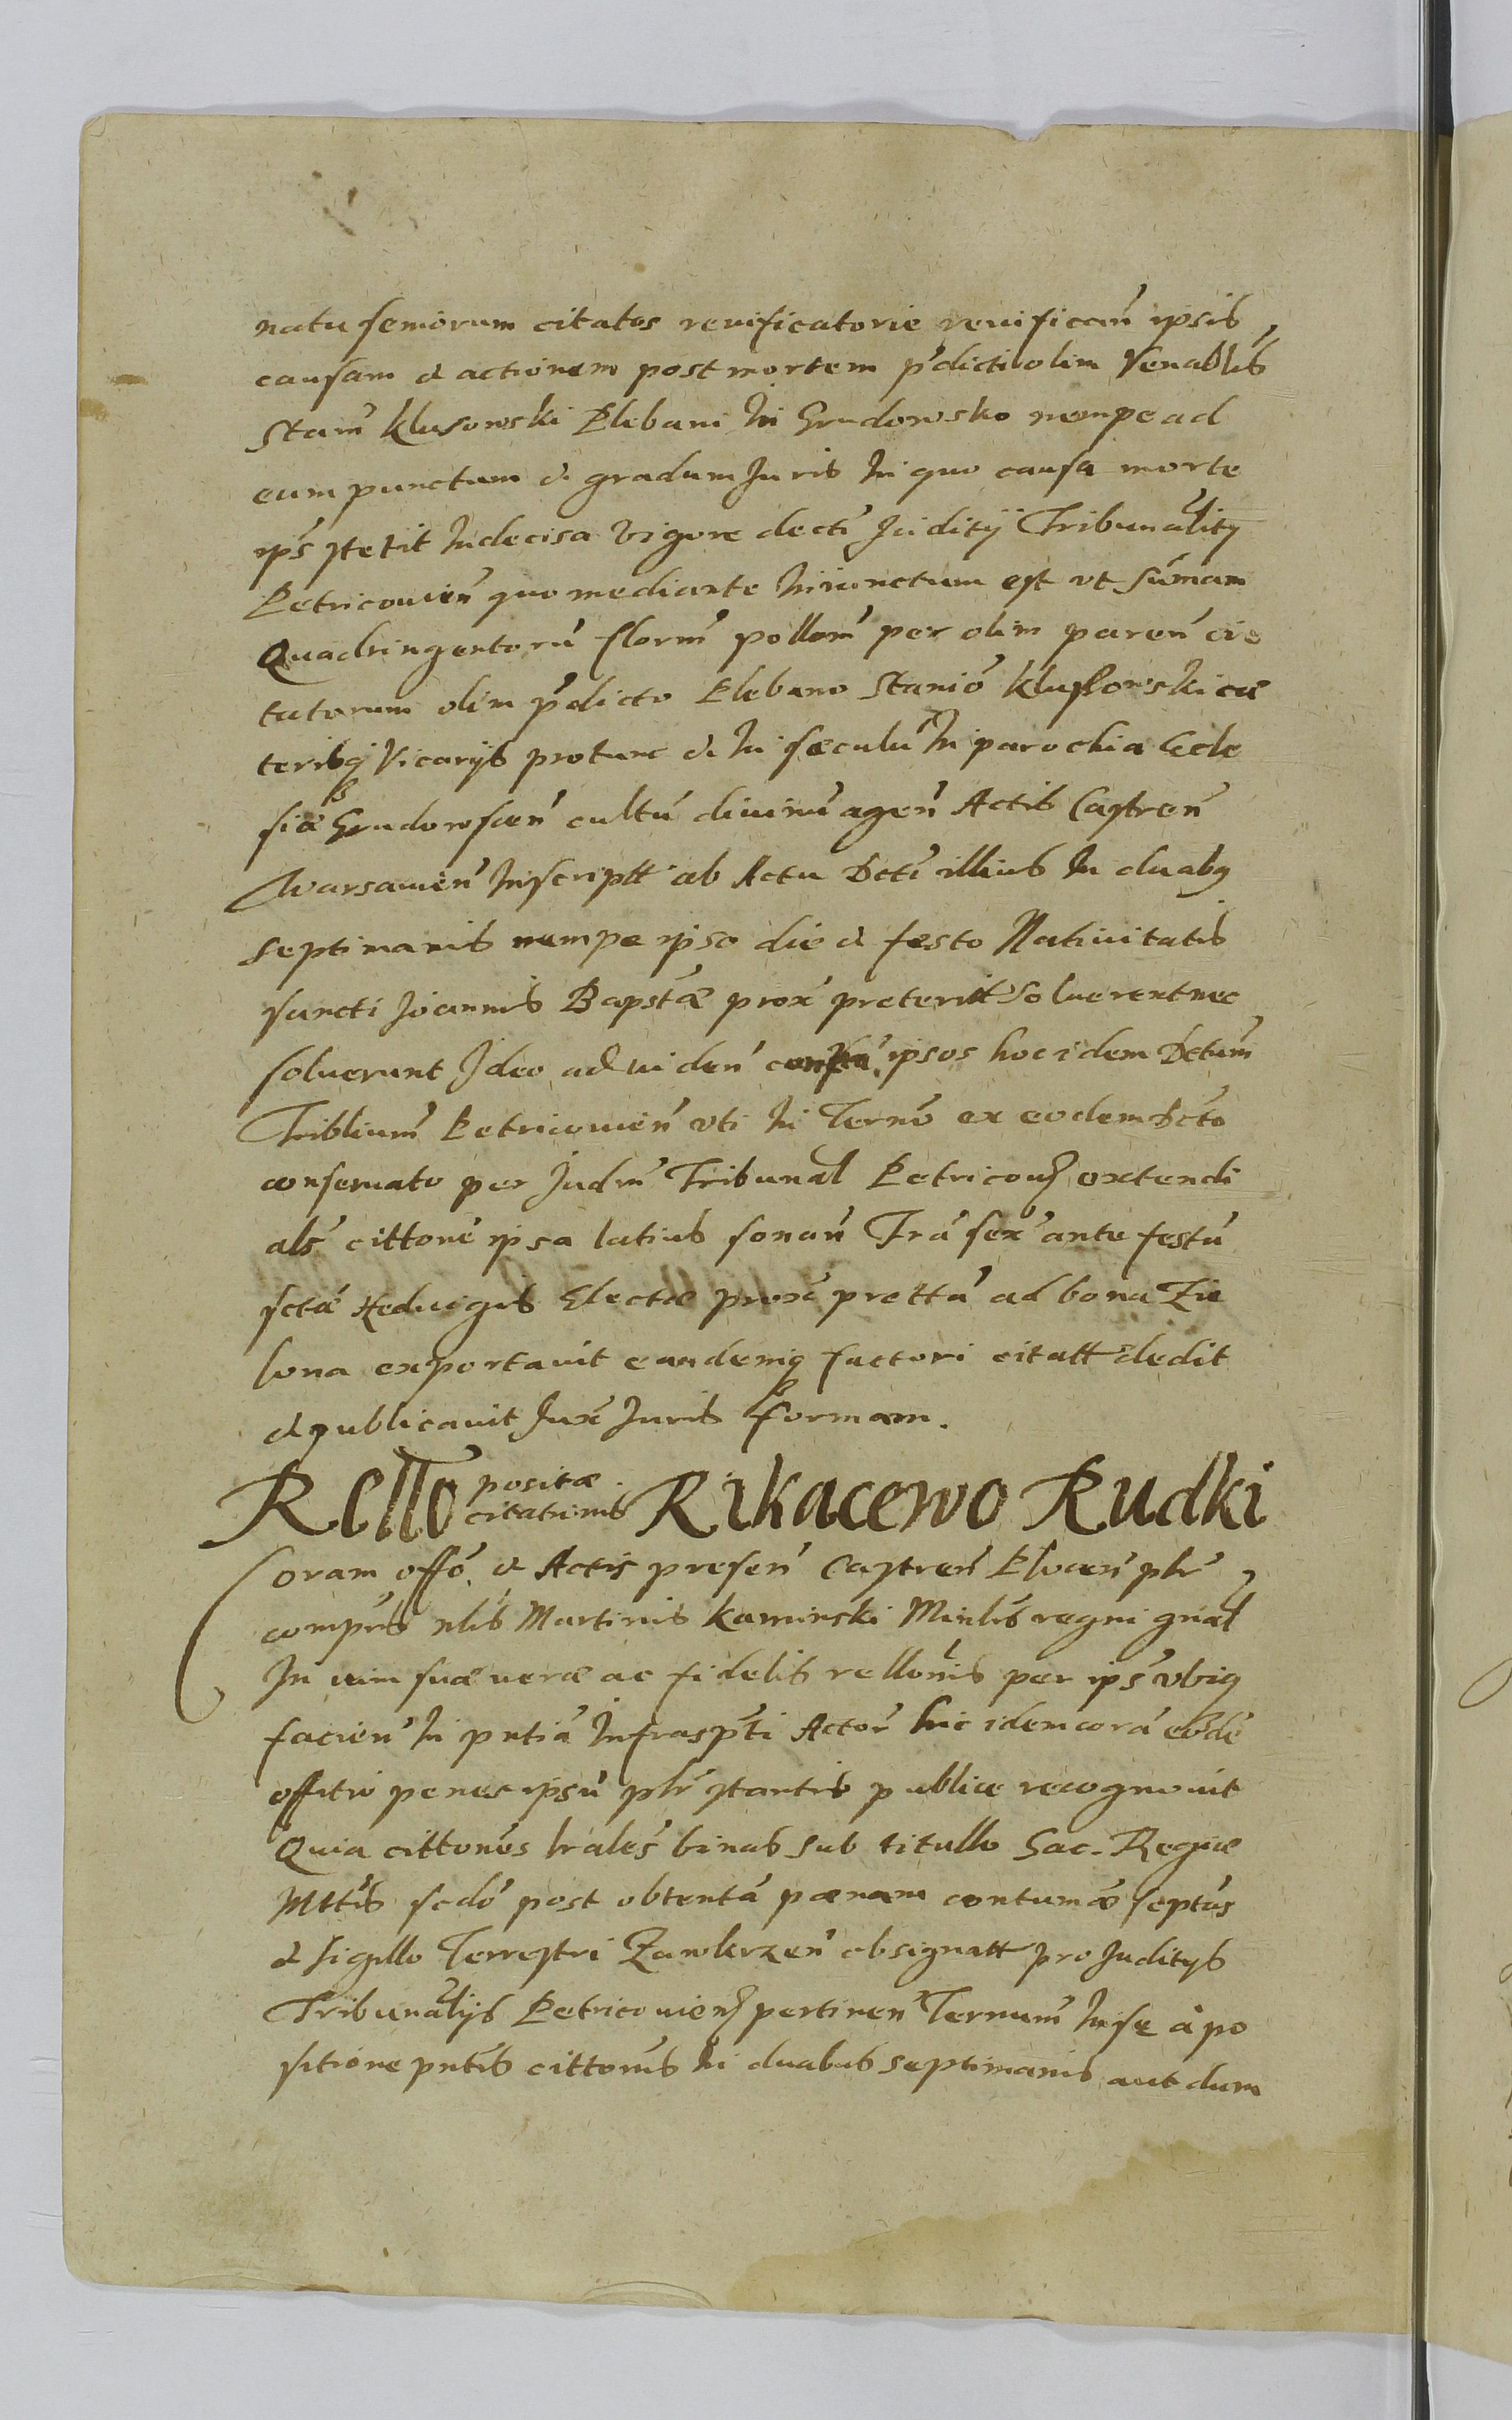 natu seniorum citatos reuificatorie reuificam̃ ipsis
causam et actionem post mortem p̃dicti olim Venablis
Stanĩ Klusowski Plebani in Grudowsko nempe ad
eum punctum et gradum Juris in quo causa morte
ips̃ stetit indecisa vigore decti Juditij Tribunality
Petricouien̄ quo mediante iniunctum est vt sum̃am
Quadringentorũ florm̃ pollem̃ per olim paren̄ ci
tatorum olim p̃dicto Plebano Stanio Klussowski cæ
teribq Vicarijs protunc et in sæculũ in parochia Ecle
siæ Grudowscen̄ cultũ diuinũ agen̄ Actis Castren̄
Warsauien̄ inscriptt ab Actu Dcti illius in duabq
septimanis nempe ipso die et festo Natiuitatis
sancti Joannis Bapstæ prox̃ preteritt soluerent nec
soluerunt Ideo ad uiden̄ ipsos hoc idem Dctum̃
Triblium̃ Petricouien̄ vti in Term̃o ex eodem Dcto
conseruato per Judm̃ Tribunal Petricou extendi
als̃ cittone ipsa latius sonan̄ Frã sex̃ ante festũ
sctæ Heduigis Electæ prox̃ prettã ad bona Zie
lona exportauit eandemq factori citatt dedit
et publicauit Jux̃ Juris formam.
Rello positæ citationis Rikacewo Rudki
Coram offo et Actis presen̄ Castren̄ Plocen̄ plr̃
compñs nlis Martinus Kaminski Minlis regni gnal
In uim suæ ueræ ac fidelis rellonis per ips̃ vbiq
facien̄ in pñtia infraspti Actor̃ hic idem corã eode
offitio penes ipsũ plr̃ stantis publice recognouit
Quia cittones lrales binas sub titullo Sac. Regiæ
Mttis scdo post obtentã pœnam contumæ septus
et sigillo Terrestri Zawkrzen̄ obsignatt pro Juditys
Tribunalijs Petricouien pertinen̄ Termum̃ in se a po
sitione pñtis cittonis in duabus septimanis aut dum